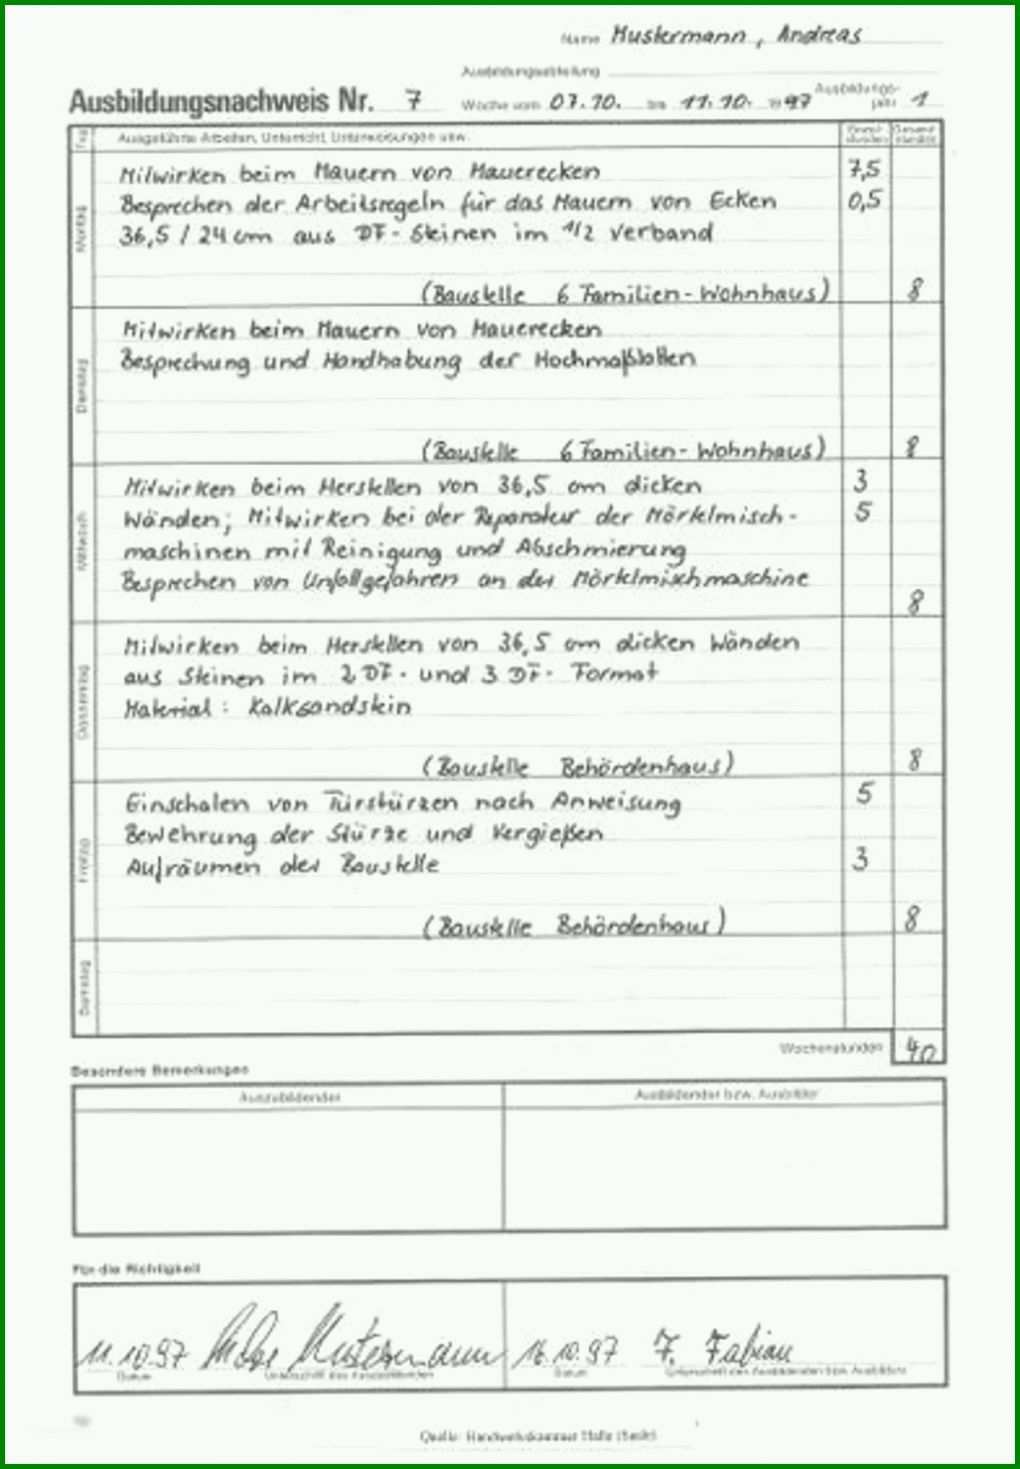 Name Mustermann, Andreas
Ausbildungsabteilung
Ausbildungsnachweis Nr. 7 Woche vom 07.10. bis 11.10. 1997 Ausbildungs-
jahr 1
Tag Ausgeführte Arbeiten, Unterricht, Unterweisungen usw. Einzel-
stunden Gesamt-
stunden
Montag
Mitwirken beim Mauern von Mauerecken 7,5
Besprechen der Arbeitsregeln für das Mauern von Ecken 0,5
36,5 / 24 cm aus DF-Steinen im 1/2 Verband
(Baustelle 6 Familien-Wohnhaus) 8
Dienstag
Mitwirken beim Mauern von Mauerecken
Besprechung und Handhabung der Hochmaßlatten
(Baustelle 6 Familien-Wohnhaus) 8
Mittwoch
Mitwirken beim Herstellen von 36,5 cm dicken 3
Wänden; Mitwirken bei der Reparatur der Mörtelmisch- 5
maschinen mit Reinigung und Abschmierung
Besprechen von Unfallgefahren an der Mörtelmischmaschine
8
Donnerstag
Mitwirken beim Herstellen von 36,5 cm dicken Wänden
aus Steinen im 2 DF- und 3 DF- Format
Material: Kalksandstein
(Baustelle Behördenhaus) 8
Freitag
Einschalen von Türstürzen nach Anweisung 5
Bewehrung der Stürze und Vergießen
Aufräumen der Baustelle 3
(Baustelle Behördenhaus) 8
Wochenstunden 40
Besondere Bemerkungen
Auszubildender Ausbildender bzw. Ausbilder
Für die Richtigkeit
11.10.97 Andreas Mustermann 16.10.97 F. Fabian
Datum Unterschrift des Auszubildenden Datum Unterschrift des Ausbildenden bzw. Ausbilders
Quelle: Handwerkskammer Halle (Saale)